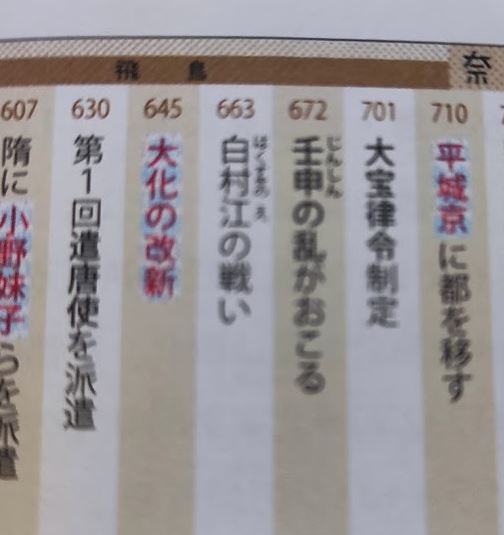 飛鳥
奈
607
隋に小野妹子らを派遣
630
第1回遣唐使を派遣
645
大化の改新
663
白村江の戦い
はくすきのえ
672
壬申の乱がおこる
じんしん
701
大宝律令制定
710
平城京に都を移す